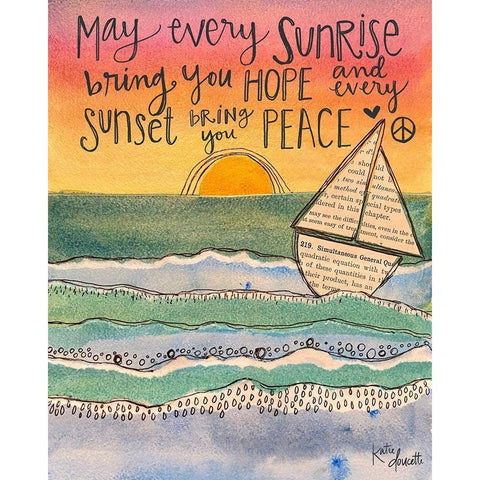 May every SUNRISE
bring you HOPE and every
SUNSET BRING you PEACE
d'
should
could not b
two simultaneous
method of quadrat
certain special types
dered in this chapter.
may see the difficulties, even in the
seem easy of treatment, consider the
219. Simultaneous General Qu
quadratic equation with tw
of these quantities in t
their product, has an
the terms
Katie Doucette